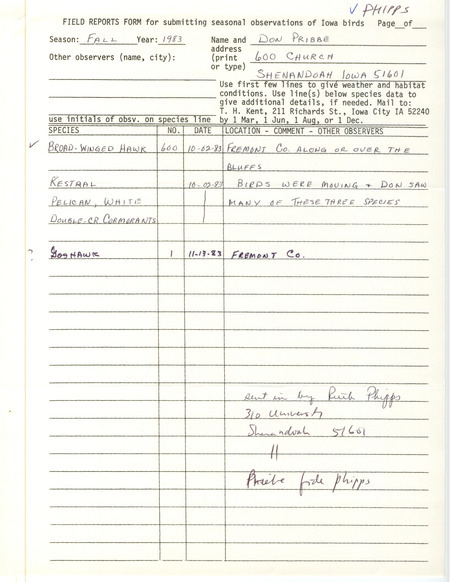 ✓ PHIPPS
FIELD REPORTS FORM for submitting seasonal observations of Iowa birds Page__of__
Season: FALL Year: 1983 Name and DON PRIBBE
address
Other observers (name, city): (print 600 CHURCH
or type)
SHENANDOAH IOWA 51601
Use first few lines to give weather and habitat
conditions. Use line(s) below species data to
give additional details, if needed. Mail to:
T. H. Kent, 211 Richards St., Iowa City IA 52240
use initials of obsv. on species line by 1 Mar, 1 Jun, 1 Aug, or 1 Dec.
SPECIES NO. DATE LOCATION - COMMENT - OTHER OBSERVERS
✓ BROAD-WINGED HAWK 600 10-02-83 FREMONT CO. ALONG OR OVER THE
BLUFFS
KESTRAL 10-02-83 BIRDS WERE MOVING + DON SAW
PELICAN, WHITE MANY OF THESE THREE SPECIES
DOUBLE-CR CORMORANTS
? GOSHAWK 1 11-13-83 FREMONT CO.
sent in by Ruth Phipps
310 University
Shenandoah 51601
"
Pribbe fide Phipps